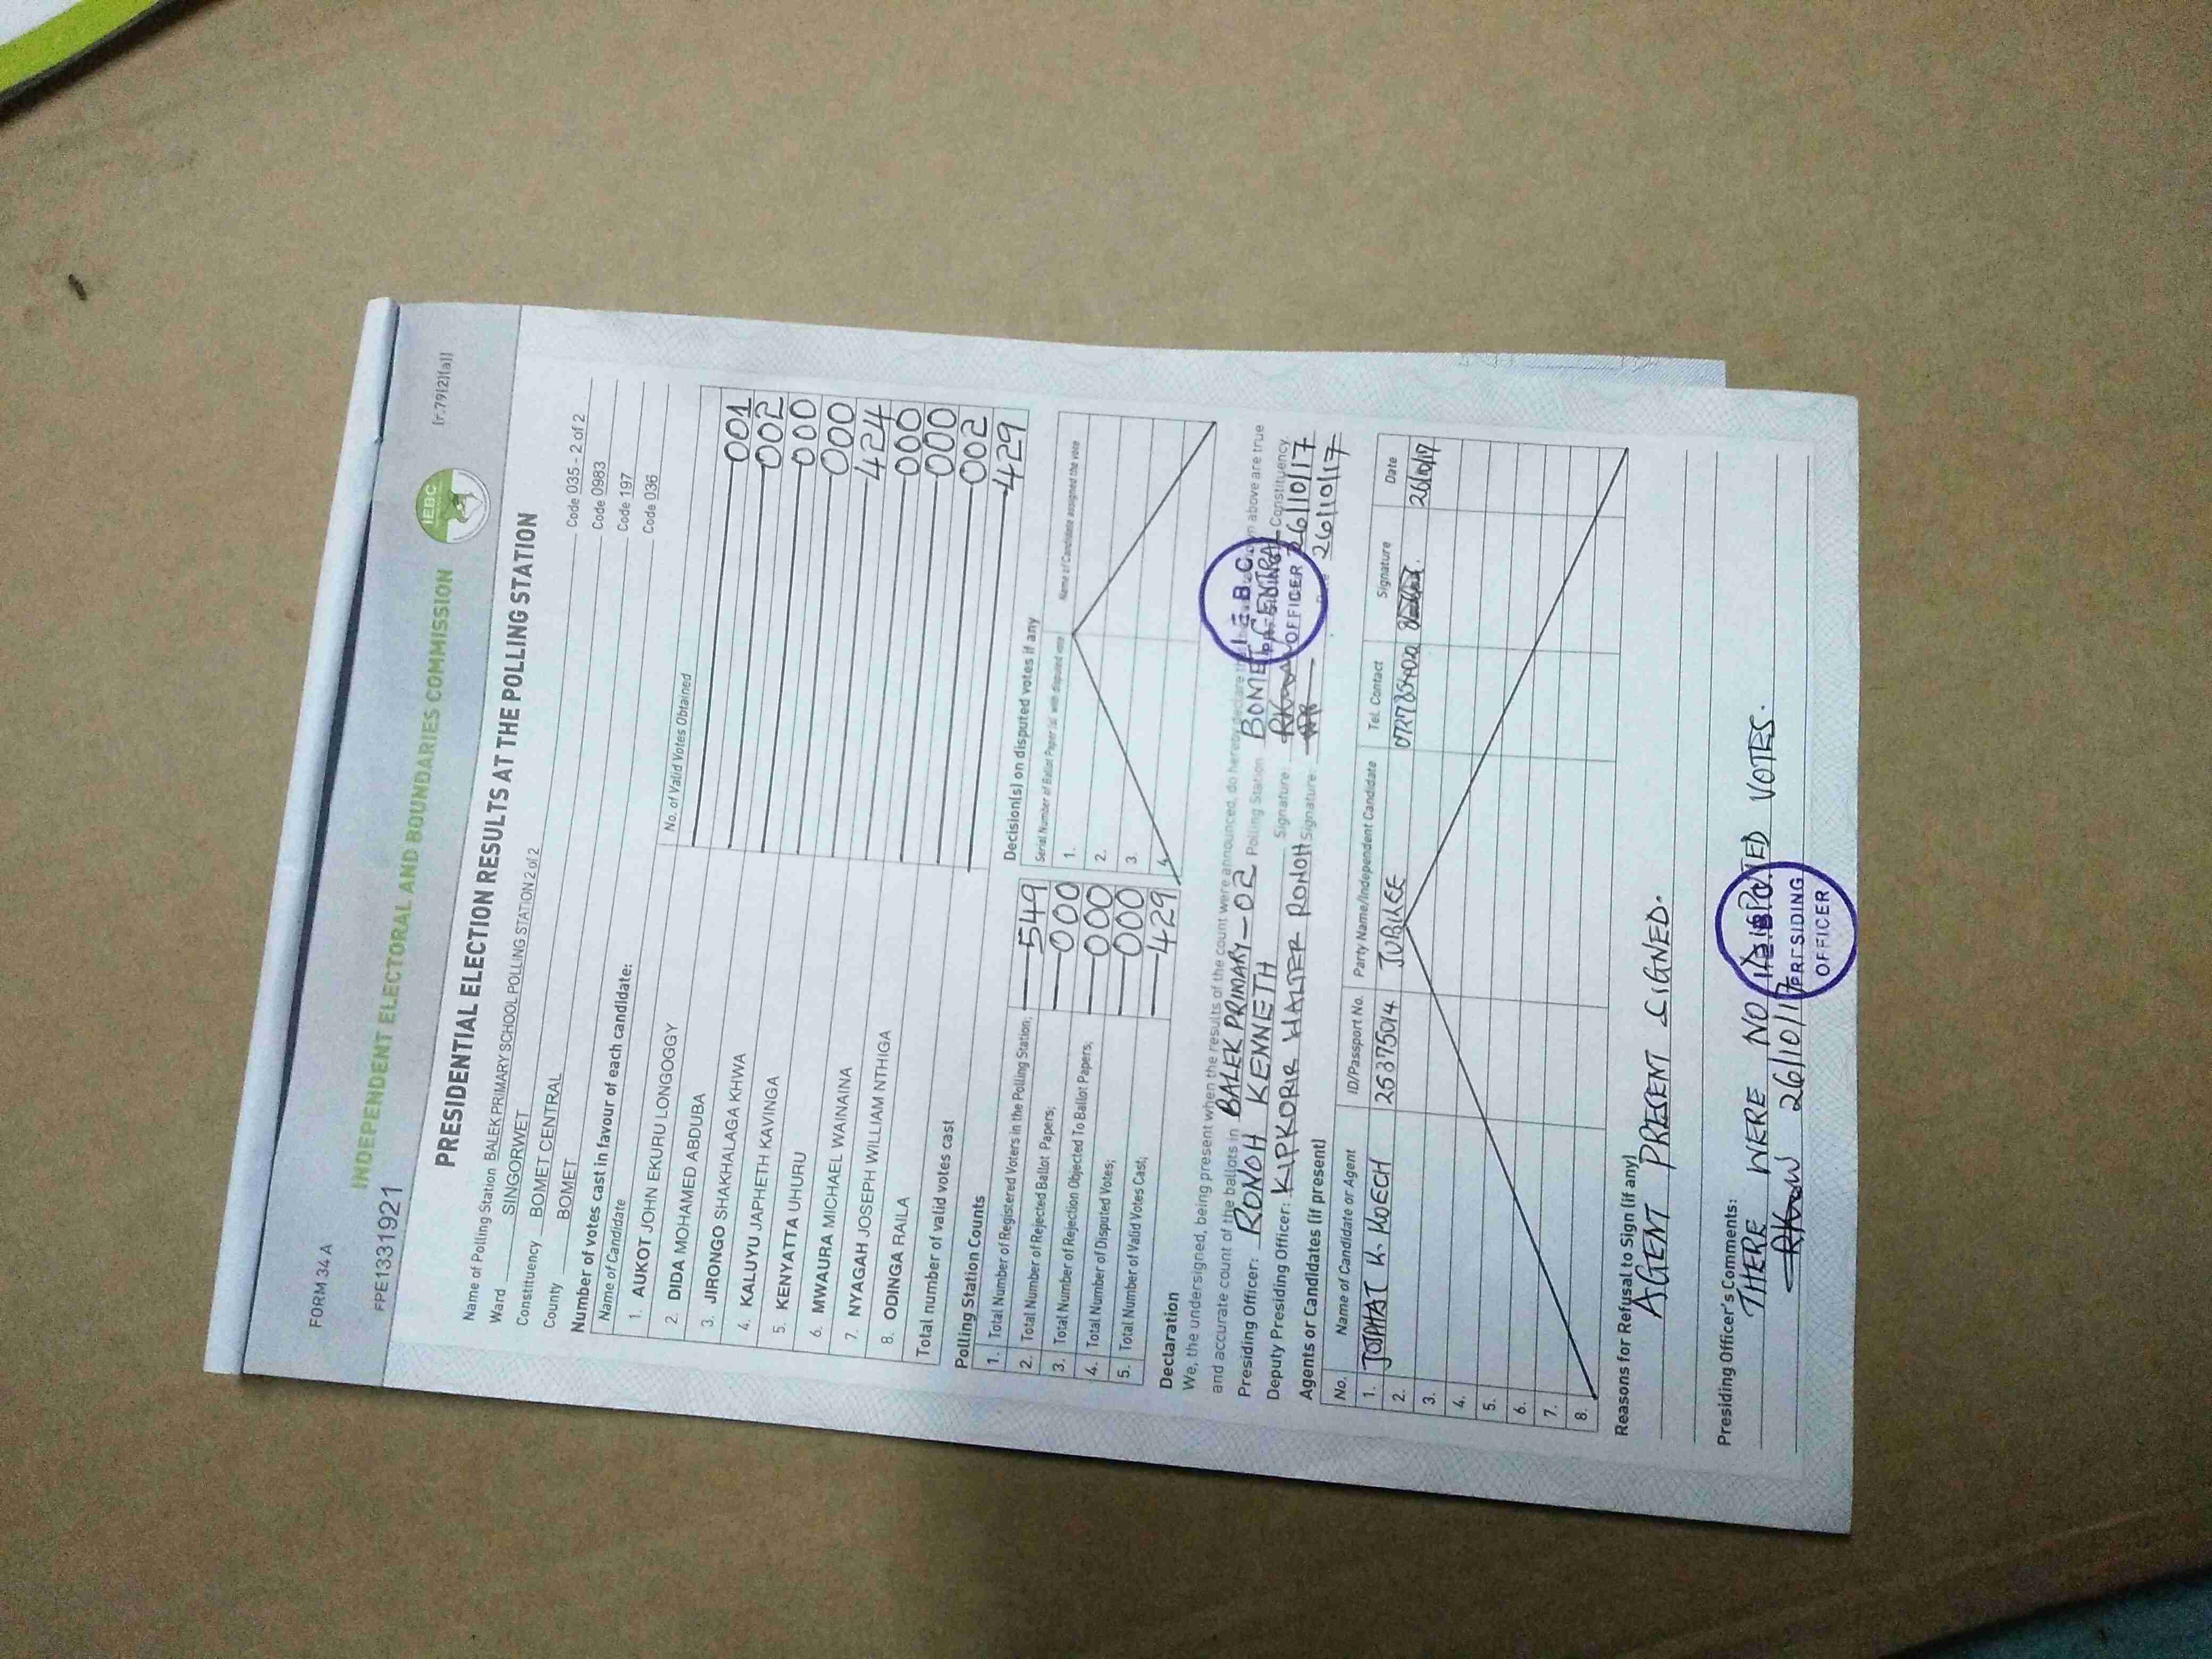 FORM 34 A
[r.79(2)(a)]
FPE1331921
INDEPENDENT ELECTORAL AND BOUNDARIES COMMISSION
IEBC
PRESIDENTIAL ELECTION RESULTS AT THE POLLING STATION
Name of Polling Station BALEK PRIMARY SCHOOL POLLING STATION 2 of 2 Code 035 - 2 of 2
Ward SINGORWET Code 0983
Constituency BOMET CENTRAL Code 197
County BOMET Code 036
Number of votes cast in favour of each candidate:
Name of Candidate No. of Valid Votes Obtained
1. AUKOT JOHN EKURU LONGOGGY 001
2. DIDA MOHAMED ABDUBA 002
3. JIRONGO SHAKHALAGA KHWA 000
4. KALUYU JAPHETH KAVINGA 000
5. KENYATTA UHURU 424
6. MWAURA MICHAEL WAINAINA 000
7. NYAGAH JOSEPH WILLIAM NTHIGA 000
8. ODINGA RAILA 002
Total number of valid votes cast 429
Polling Station Counts
1. Total Number of Registered Voters in the Polling Station; 549
2. Total Number of Rejected Ballot Papers; 000
3. Total Number of Rejection Objected To Ballot Papers; 000
4. Total Number of Disputed Votes; 000
5. Total Number of Valid Votes Cast; 429
Decision(s) on disputed votes if any
Serial Number of Ballot Paper(s) with disputed vote Name of Candidate assigned the vote
1.
2.
3.
4.
Declaration
We, the undersigned, being present when the results of the count were announced, do hereby declare that above are true
and accurate count of the ballots in BALEK PRIMARY-02 Polling Station BOMET CENTRAL Constituency
Presiding Officer: RONOH KENNETH Signature: 26/10/17
Deputy Presiding Officer: KIPKORIR WALTER RONOH Signature: 26/10/17
I.E.B.C.
PRESIDING
OFFICER
Agents or Candidates (if present)
No. Name of Candidate or Agent ID/Passport No. Party Name/Independent Candidate Tel. Contact Signature Date
1. JOSPHAT K. KOECH 25375014 JUBILEE 0727785400 26/10/17
2.
3.
4.
5.
6.
7.
8.
Reasons for Refusal to Sign (if any)
AGENT PRESENT SIGNED.
Presiding Officer's Comments:
THERE WERE NO DISPUTED VOTES.
26/10/17
PRESIDING
OFFICER